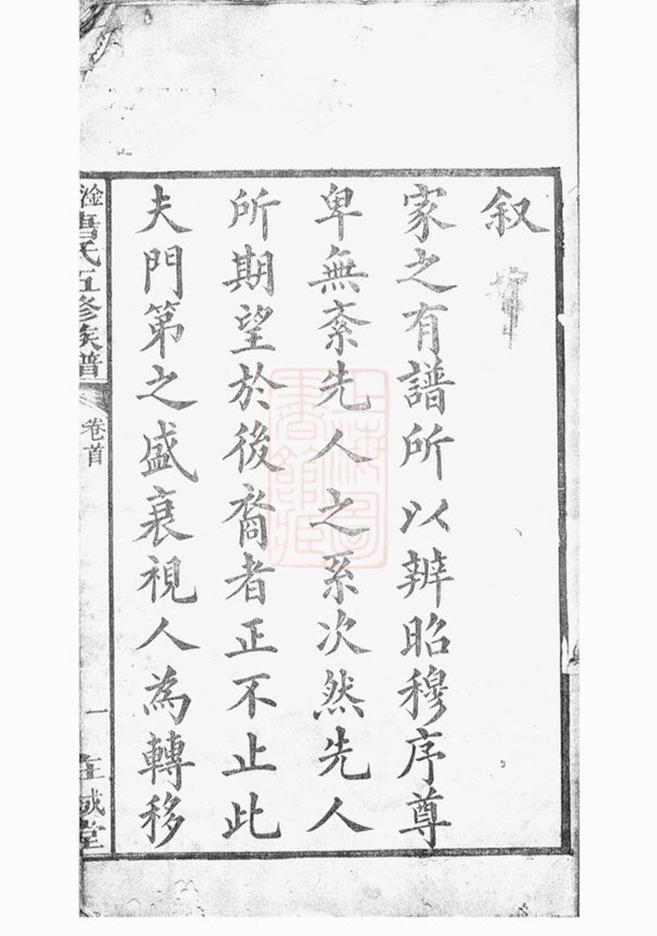 叙
家之有譜所以辨昭穆序尊
卑無紊先人之系次然先人
所期望於後裔者正不止此
夫門第之盛衰視人為轉移
淦
氏五修族譜
卷首
一
誠堂
上海圖書館藏